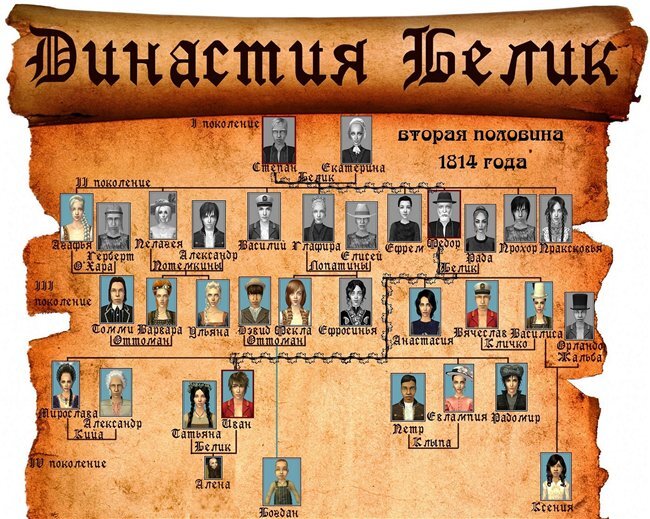 Династия Белик
I поколение
вторая половина
1814 года
Степан Екатерина
Белик
II поколение
Агафья Герберт Пелагея Александр Василий Глафира Елисей Ефрем Федор Рада Прохор Прасковья
О'Хара Потемкины Лопатины Белик
III поколение
Томми Варвара Ульяна Дэвид Фекла Ефросинья Анастасия Вячеслав Василиса Орландо
Оттоман Оттоман Кличко Жальба
Мирослава Александр Татьяна Иван Петр Евлампия Радомир
Кийа Белик Клыпа
IV поколение
Алена Богдан Ксения